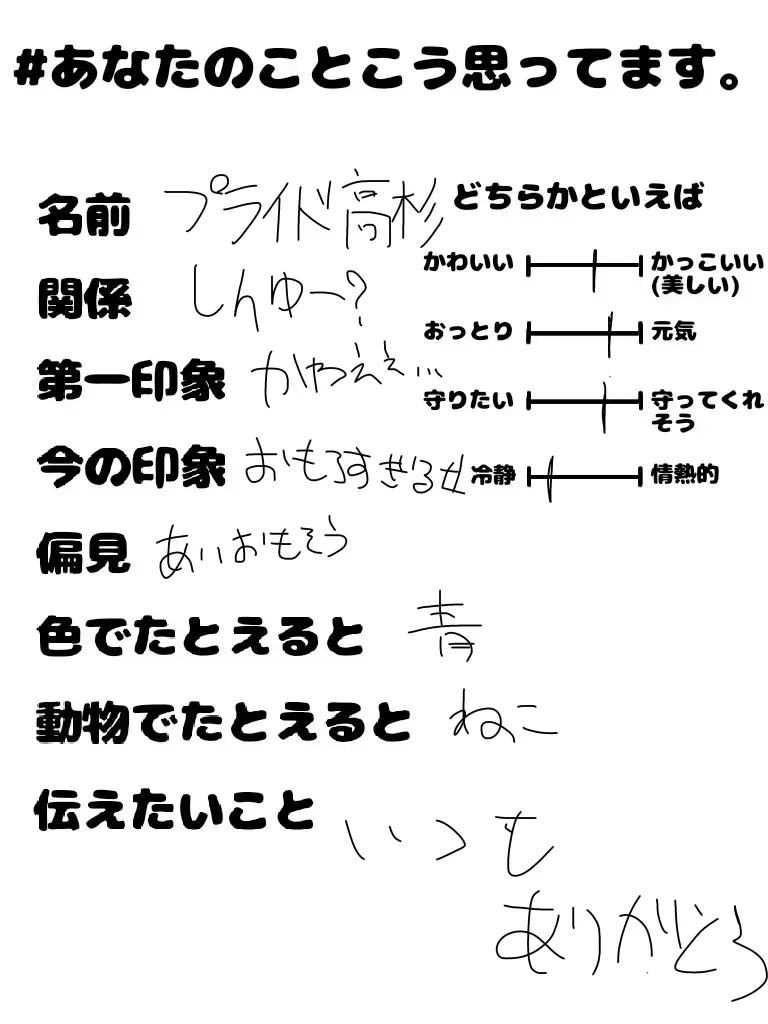 #あなたのことこう思ってます。
名前 プライド高杉
関係 しんゆー?
第一印象 かわえぇ...
今の印象 おもろすぎる女
偏見 あいおもそう
色でたとえると 青
動物でたとえると ねこ
伝えたいこと いつも
ありがとう
どちらかといえば
かわいい かっこいい
(美しい)
おっとり 元気
守りたい 守ってくれ
そう
冷静 情熱的